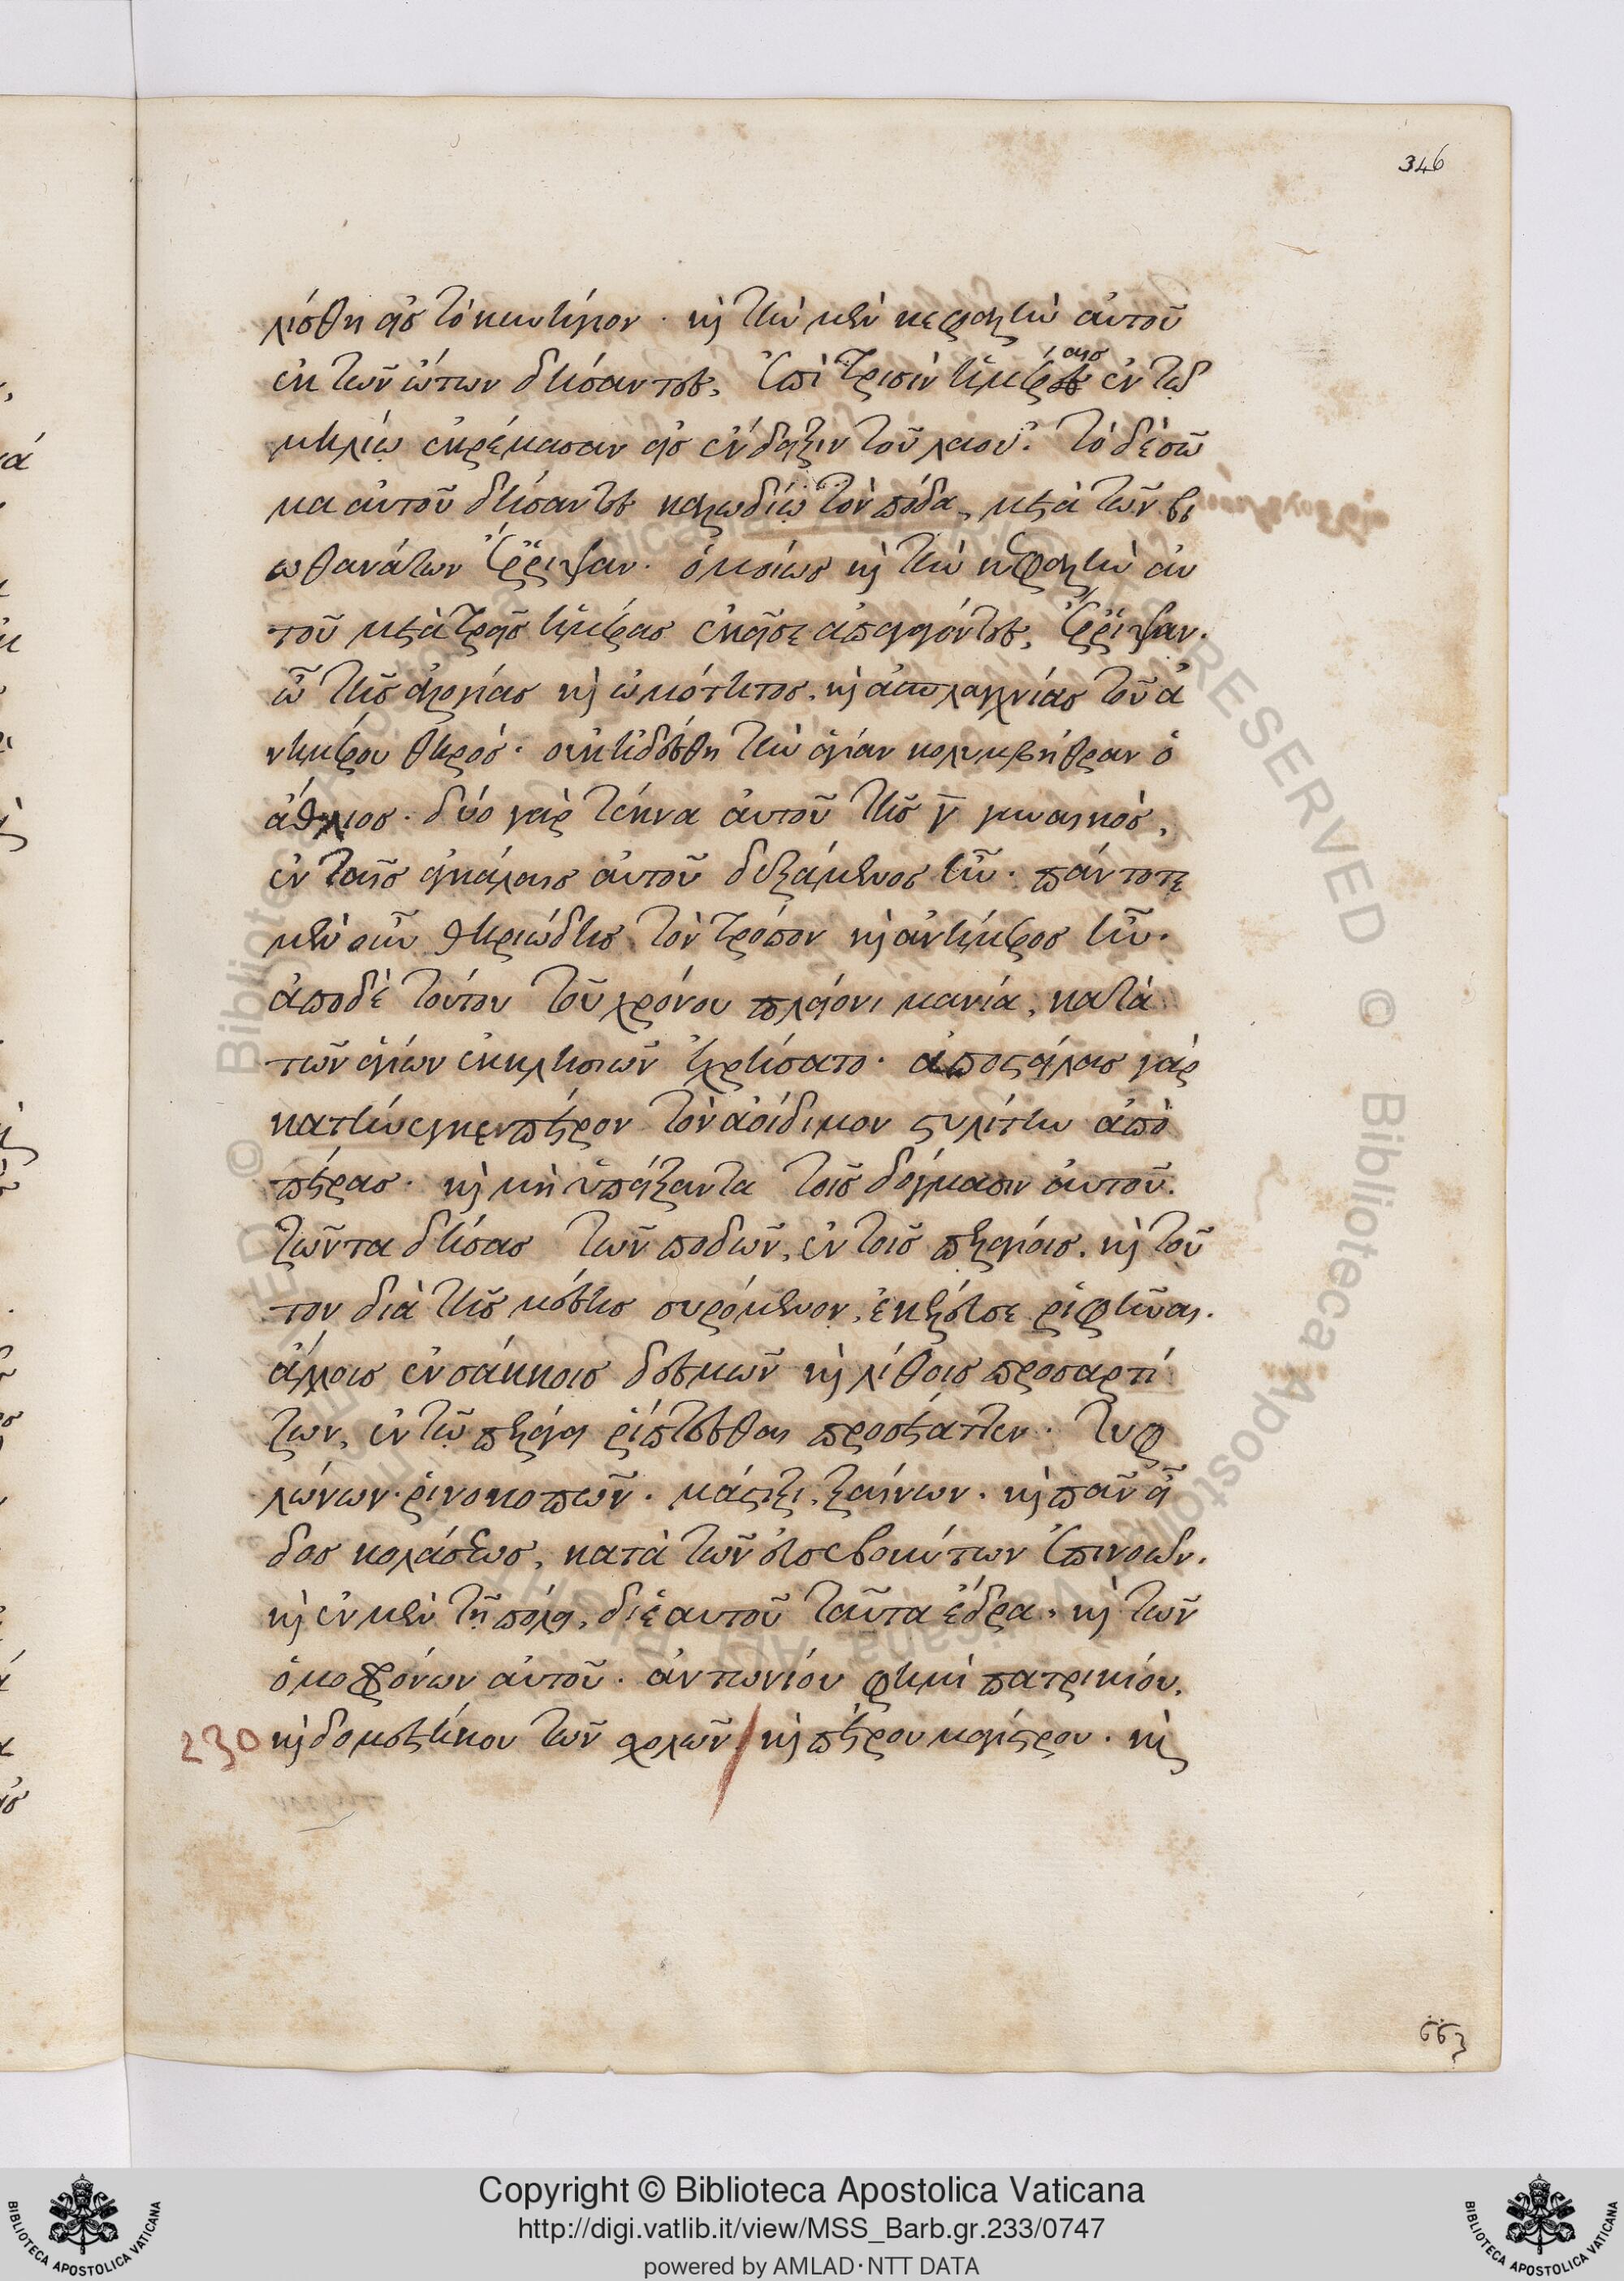 346
λίσθη εἰς τὸ κυνήγιον. καὶ τὴν μὲν κεφαλὴν αὐτοῦ
ἐκ τῶν ὤτων δήσαντες, ἐπὶ τρισὶν ἡμέραις ἐν τῷ
μηλίῳ ἐκρέμασαν εἰς ἔνδειξιν τοῦ λαοῦ. τὸ δὲ σῶ
μα αὐτοῦ δήσαντες καλωδίῳ τὸν πόδα, μετὰ τῶν βι
ωθανάτων ἔρριψαν. ὁμοίως καὶ τὴν κεφαλὴν αὐ
τοῦ μετὰ τρεῖς ἡμέρας ἐκεῖσε ἀπαγαγόντες, ἔρριψαν.
ὦ τῆς ἀλογίας καὶ ὠμότητος, καὶ ἀσπλαγχνίας τοῦ ἀ
νημέρου θηρός. οὐκ ᾐδέσθη τὴν ἁγίαν κολυμβήθραν ὁ
ἄθλιος. δύο γὰρ τέκνα αὐτοῦ τῆς γ̄ γυναικὸς,
ἐν ταῖς ἀγκάλαις αὐτοῦ δεξάμενος ἦν. πάντοτε
μὲν οὖν θηριώδης τὸν τρόπον καὶ ἀνήμερος ἦν.
ἀπο δὲ τούτου τοῦ χρόνου πλείονι μανία, κατὰ
τῶν ἁγίων ἐκκλησιῶν ἐχρήσατο. ἀποστείλας γὰρ
κατήνεγκεν πέτρον τὸν ἀοίδιμον στυλίτην ἀπὸ
πέτρας. καὶ μὴ ὑπείξαντα τοῖς δόγμασιν αὐτοῦ.
ζῶντα δήσας τῶν ποδῶν, ἐν τοῖς πελαγίοις. καὶ τοῦ
τον διὰ τῆς μέσης συρόμενον, ἐκέλευσε ῥιφῆναι.
ἄλλοις ἐν σάκκοις δεσμῶν καὶ λίθοις προσαρτί
ζων, ἐν τῷ πελάγει ῥίπτεσθαι προσέταττεν. τυφ
λώνων. ῥινοκοπῶν. μάστιξι, ξαίνων. καὶ πᾶν εἶ
δος κολάσεως, κατὰ τῶν εὐσεβούντων ἐπινοῶν.
καὶ ἐν μὲν τῇ πόλει, δι ἑαυτοῦ ταῦτα ἔδρα, καὶ τῶν
ὁμοφρόνων αὐτοῦ. ἀντωνίου φημὶ πατρικίου,
230 καὶ δομεστίκου τῶν σχολῶν / καὶ πέτρου μαγίστρου. καὶ
663
Copyright © Biblioteca Apostolica Vaticana
http://digi.vatlib.it/view/MSS_Barb.gr.233/0747
powered by AMLAD·NTT DATA